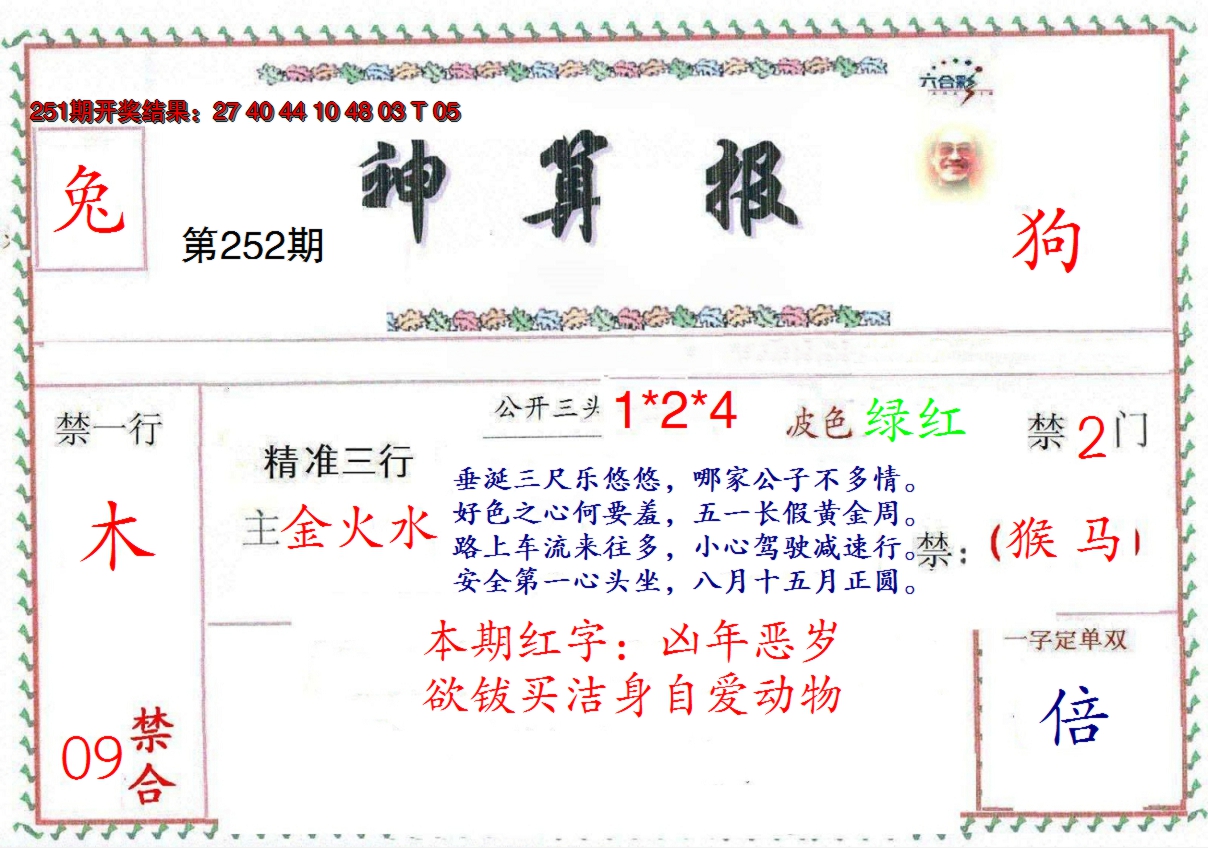 六合彩
251期开奖结果：27 40 44 10 48 03 T 05
神算报
兔
第252期
狗
禁一行
木
09禁合
精准三行
主金火水
公开三头 1*2*4
波色 绿红
禁2门
禁：(猴 马)
垂涎三尺乐悠悠，哪家公子不多情。
好色之心何要羞，五一长假黄金周。
路上车流来往多，小心驾驶减速行。
安全第一心头坐，八月十五月正圆。
本期红字：凶年恶岁
欲钹买洁身自爱动物
一字定单双
倍